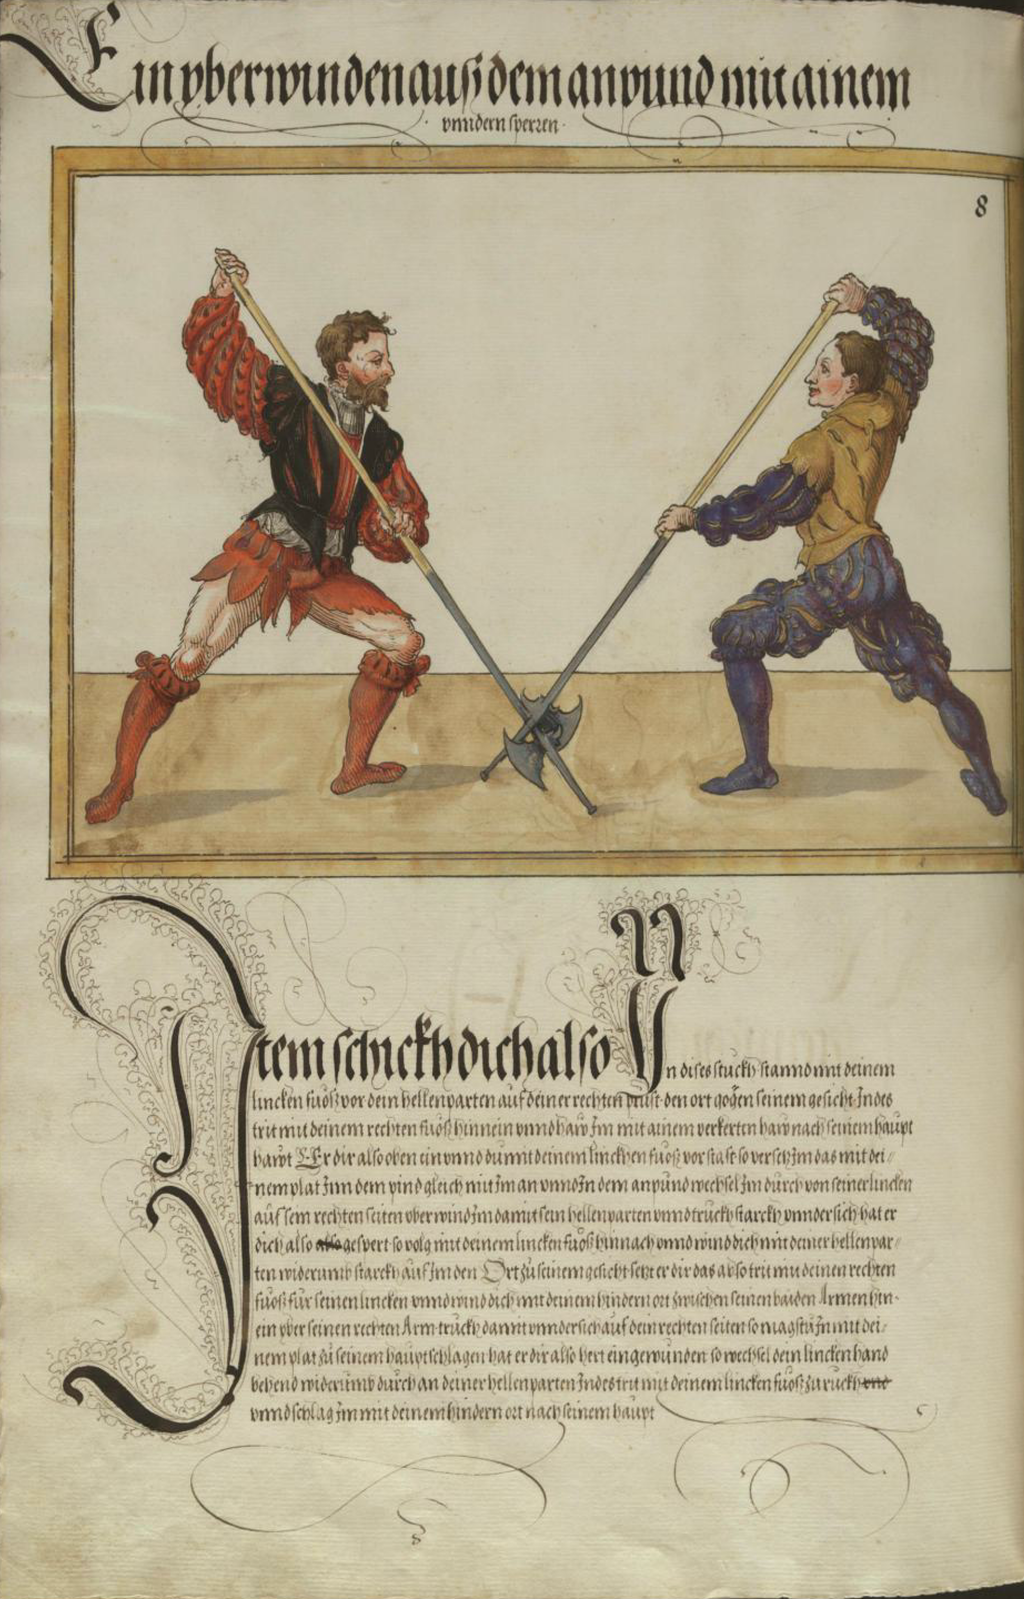 Ein vberwinden auß dem anpund mit ainem
vnndern sperren
8
Item schickh dich also In
In dises stuckh stannd mit deinem
lincken fuoß vor dein hellenparten auf deiner rechten prust den ort gögen seinem gesicht Indes
trit mit deinem rechten fuoß hinnein vnnd haw Im mit ainem verkerten haw nach seinem haupt
hawt Er dir also oben ein vnnd du mit deinem linckhen fuoß vor stast so versetz Im das mit dei-
nem plat Inn dem pind gleich mit Im an vnnd In dem anpund wechsel Im durch von seiner lincken
auf sein rechten seiten vberwind Im damit sein hellenparten vnnd truckh starckh vnnder sich hat er
dich also also gespert so volg mit deinem lincken fuoß hinnach vnnd wind dich mit deiner hellenpar-
ten widerumb starckh auf Im den Ort zu seinem gesicht setzt er dir das ab so trit mit deinen rechten
fuoß für seinen lincken vnnd wind dich mit deinem hindern ort zwischen seinen baiden Armen hin-
ein vber seinen rechten Arm truckh damit vnndersich auf dein rechten seiten so magstu In mit dei-
nem plat zu seinem haupt schlagen hat er dir also hert eingewunden so wechsel dein lincken hand
behend widerumb durch an deiner hellenparten Indes trit mit deinem lincken fuoß zu ruckh vnd
vnnd schlag Im mit deinem hindern ort nach seinem haupt
8